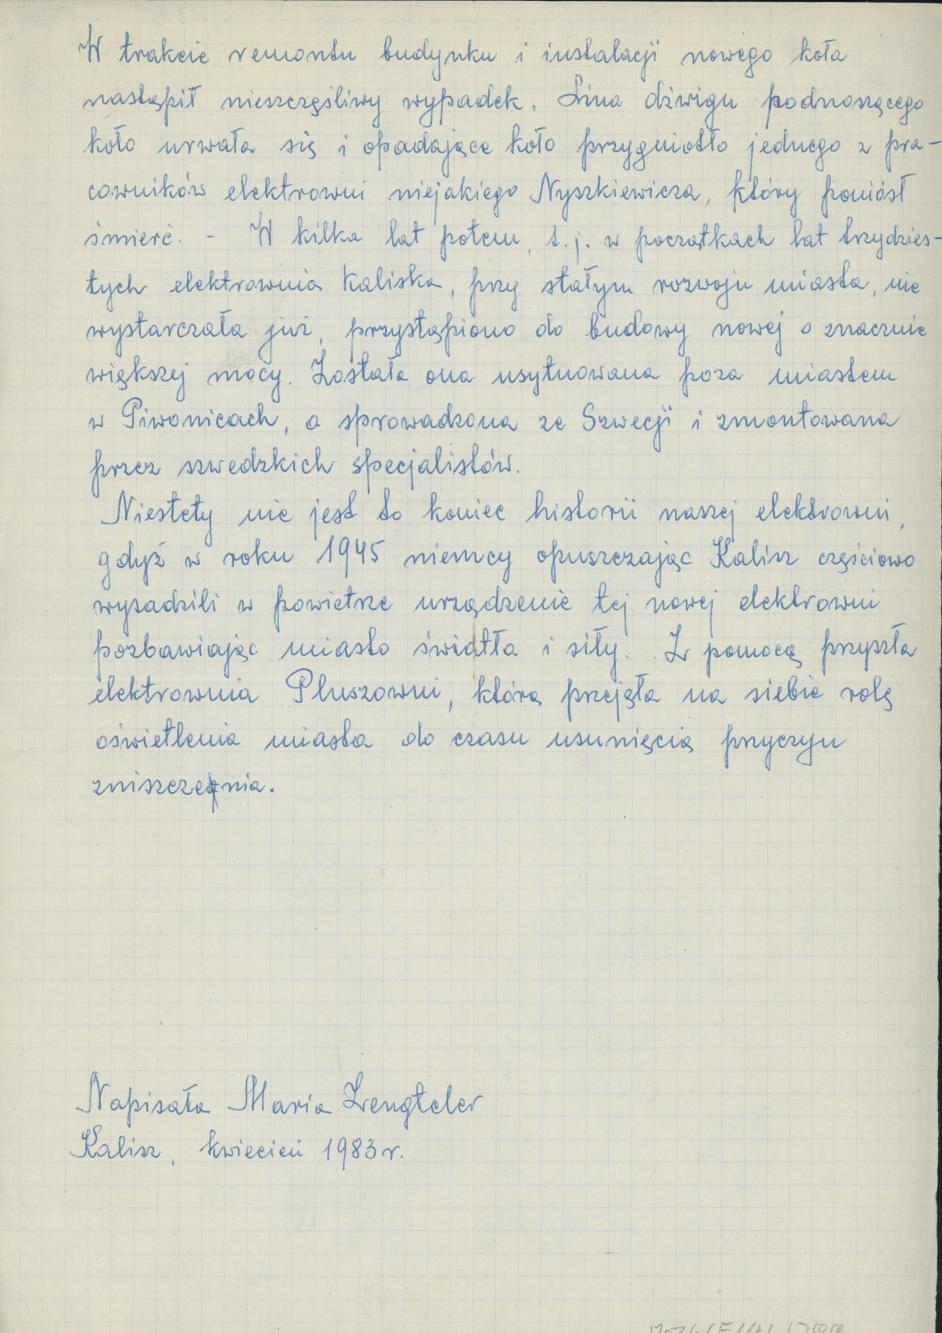 W trakcie remontu budynku i instalacji nowego koła
nastąpił nieszczęśliwy wypadek. Lina dźwigu podnoszącego
koło urwała się i opadające koło przygniotło jednego z pra-
cowników elektrowni niejakiego Nyszkiewicza, który poniósł
śmierć. - W kilka lat potem, t.j. w początkach lat trzydzies-
tych elektrownia Kaliska, przy stałym rozwoju miasta, nie
wystarczała już, przystąpiono do budowy nowej o znacznie
większej mocy. Została ona usytuowana poza miastem
w Piwonicach, a sprowadzona ze Szwecji i zmontowana
przez szwedzkich specjalistów.
Niestety nie jest to koniec historii naszej elektrowni,
gdyż w roku 1945 niemcy opuszczając Kalisz częściowo
wysadzili w powietrze urządzenie tej nowej elektrowni
pozbawiając miasto światła i siły. Z pomocą przyszła
elektrownia Pluszowni, która przejęła na siebie rolę
oświetlenia miasta do czasu usunięcia przyczyn
zniszczenia.
Napisała Maria
Kalisz, kwiecień 1983 r.